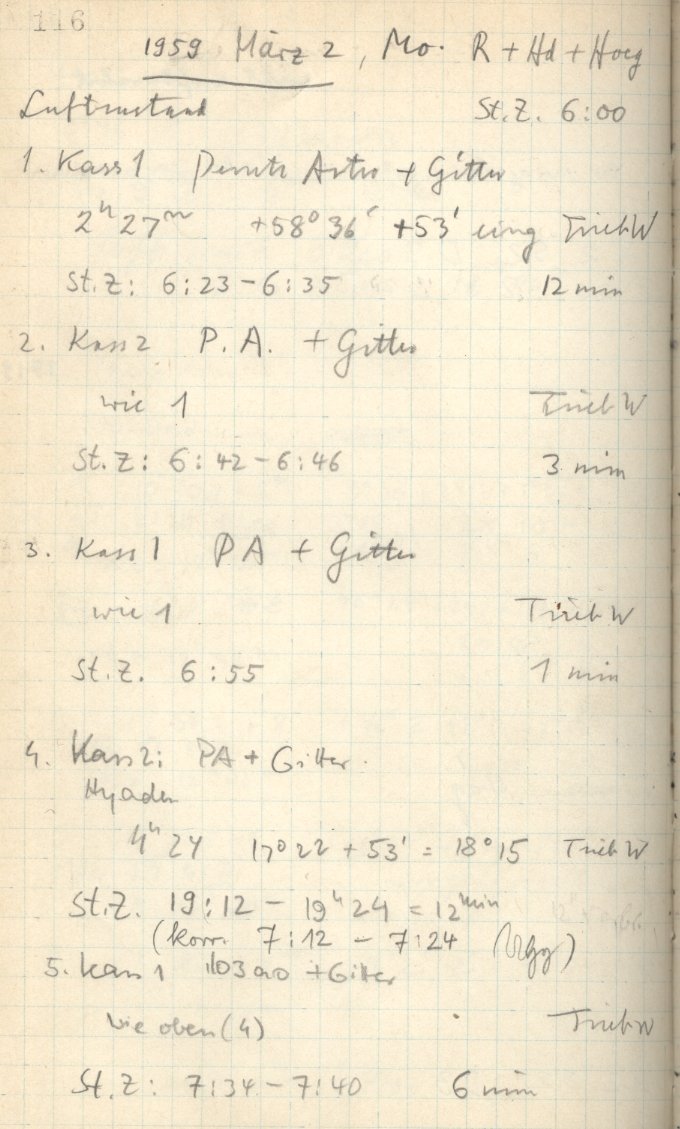 116
1959 März 2, Mo. R + Hd + Hoeg
Luftzustand St.Z. 6:00
1. Kass 1 Perutz Astro + Gitter
2ʰ 27ᵐ +58° 36' +53' eing TriebW
St.Z: 6:23 – 6:35 12 min
2. Kass 2 P. A. + Gitter
wie 1 TriebW
St.Z: 6:42 – 6:46 3 min
3. Kass 1 PA + Gitter
wie 1 TriebW
St.Z. 6:55 1 min
4. Kass 2: PA + Gitter.
Hyaden
4ʰ 24 17° 22 + 53' = 18° 15 TriebW
St.Z. 19:12 – 19ʰ 24 = 12ᵐⁱⁿ
(korr. 7:12 – 7:24 )
5. Kass 1 103a0 + Gitter
wie oben (4) TriebW
St.Z: 7:34 – 7:40 6 min